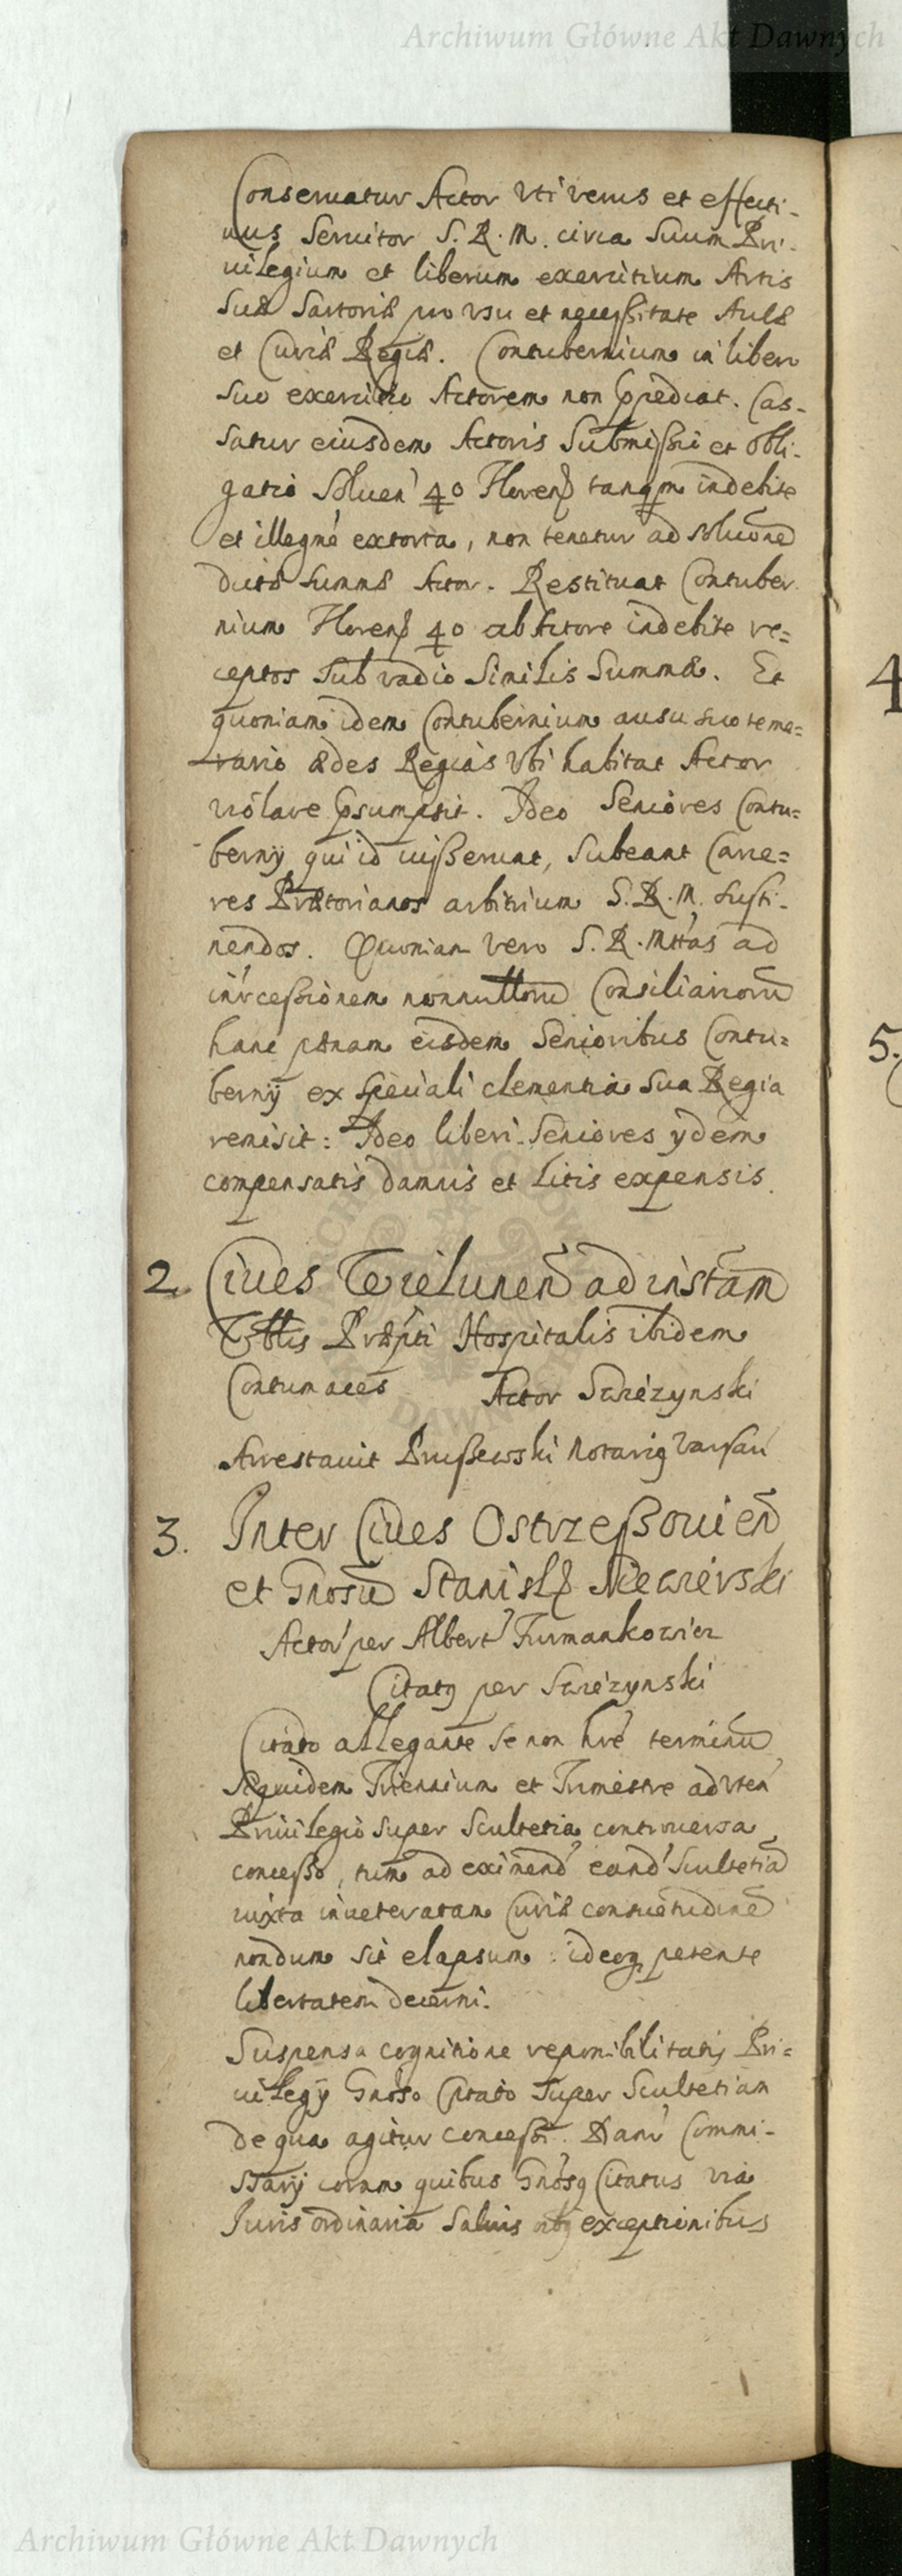 Archiwum Główne Akt Dawnych
Conseruatur Actor vti verus et effecti-
uus Seruitor S. R. M. circa Suum Pri-
uilegium et liberum exercitium Artis
Suæ Sartoriæ pro vsu et necessitate Aulæ
et Curiæ Regiæ. Contubernium in libero
Suo exercitio Actorem non impediat. Cas-
satur eiusdem Actoris Submissio et obli-
gatio Soluen' 40 Floren tanqm indebite
et illegne extorta, non tenetur ad solucone
dictæ Summæ Actor. Restituat Contuber
nium Floren 40 ab Actore indebite re=
ceptos Sub vadio Similis Summæ. Et
quoniam idem Contubernium ausu suo teme=
rario ædes Regias vbi habitat Actor
violare psumpsit. Ideo Seniores Contu=
bernij qui id iusserunt, Subeant Carce=
res Prætorianos arbitrium S. R. M. susti-
nendos. Quoniam vero S. R. Mttas ad
intrcessionem nonnulloru Consiliarioru
hanc pænam eisdem Senioribus Contu=
bernij ex Speciali clementia Sua Regia
remisit: Ideo liberi Seniores ydem
compensatis damnis et Litis expensis.
2. Ciues Wielunen ad instam
Vblis Præpti Hospitalis ibidem
Contumaces Actor Swiezynski
Arrestauit Prussewski Notarig Varsau
3. Inter Ciues Ostrzessouien
et Gnosu Stanisl Niewierski
Actor per Albert Furmankowicz
Citatg per Swiezynski
Citato allegante se non hre terminu
Siquidem Triennium et Trimestre ad vten
Priuilegio super Scultetia controuersa
concesso, tum ad eximend eand Scultetia
iuxta inueteratam Curiæ consuetudine
nondum sit elapsum: ideoq petente
libertatem decerni.
Suspensa cognitione reponibilitatis Pri=
uilegij Gnoso Citato Super Scultetiam
de qua agitur concessi. Danr Commi-
ssarij coram quibus Gnosg Citatus via
Iuris ordinaria Saluis oibg exceptionibus
4
5.
Archiwum Główne Akt Dawnych